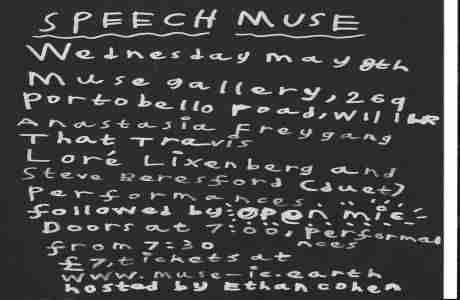 SPEECH MUSE
Wednesday may 8th
Muse gallery, 269
Portobello road, Will
Anastasia Freygang
That Travis
Loré Lixenberg and
Steve Beresford (duet)
Performances
followed by: open mic
Doors at 7:00, performances
from 7:30
£7, tickets at
www.muse-ic.earth
hosted by Ethan Cohen